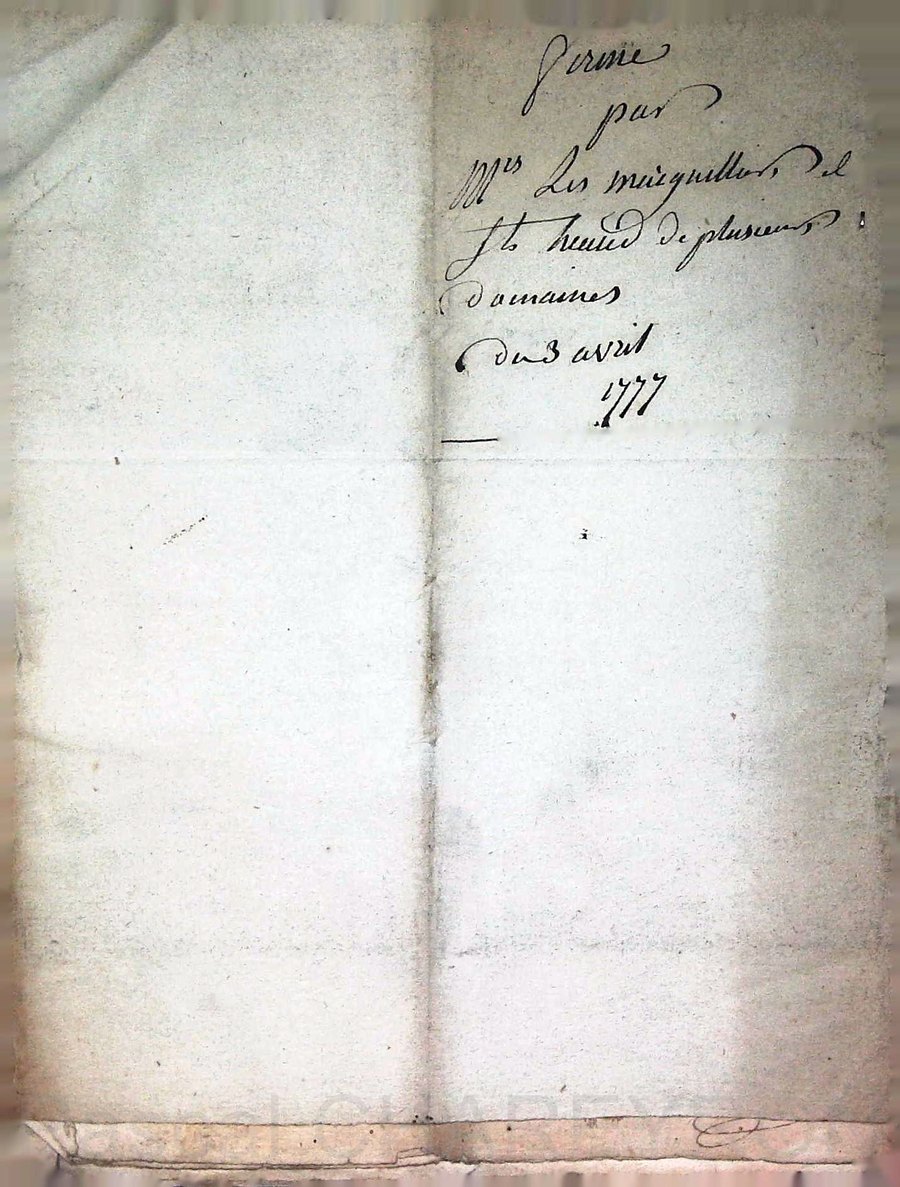 ferme
par
Mrs Les marguilliers de
Sts de plusieurs
domaines
du 3 avril
1777